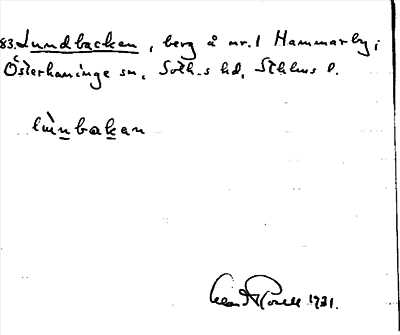 83. Lundbacken, berg å nr. 1 Hammarby,
Österhaninge sn, Soth.-s hd, Sthlms l.
lùnbakan
1931.